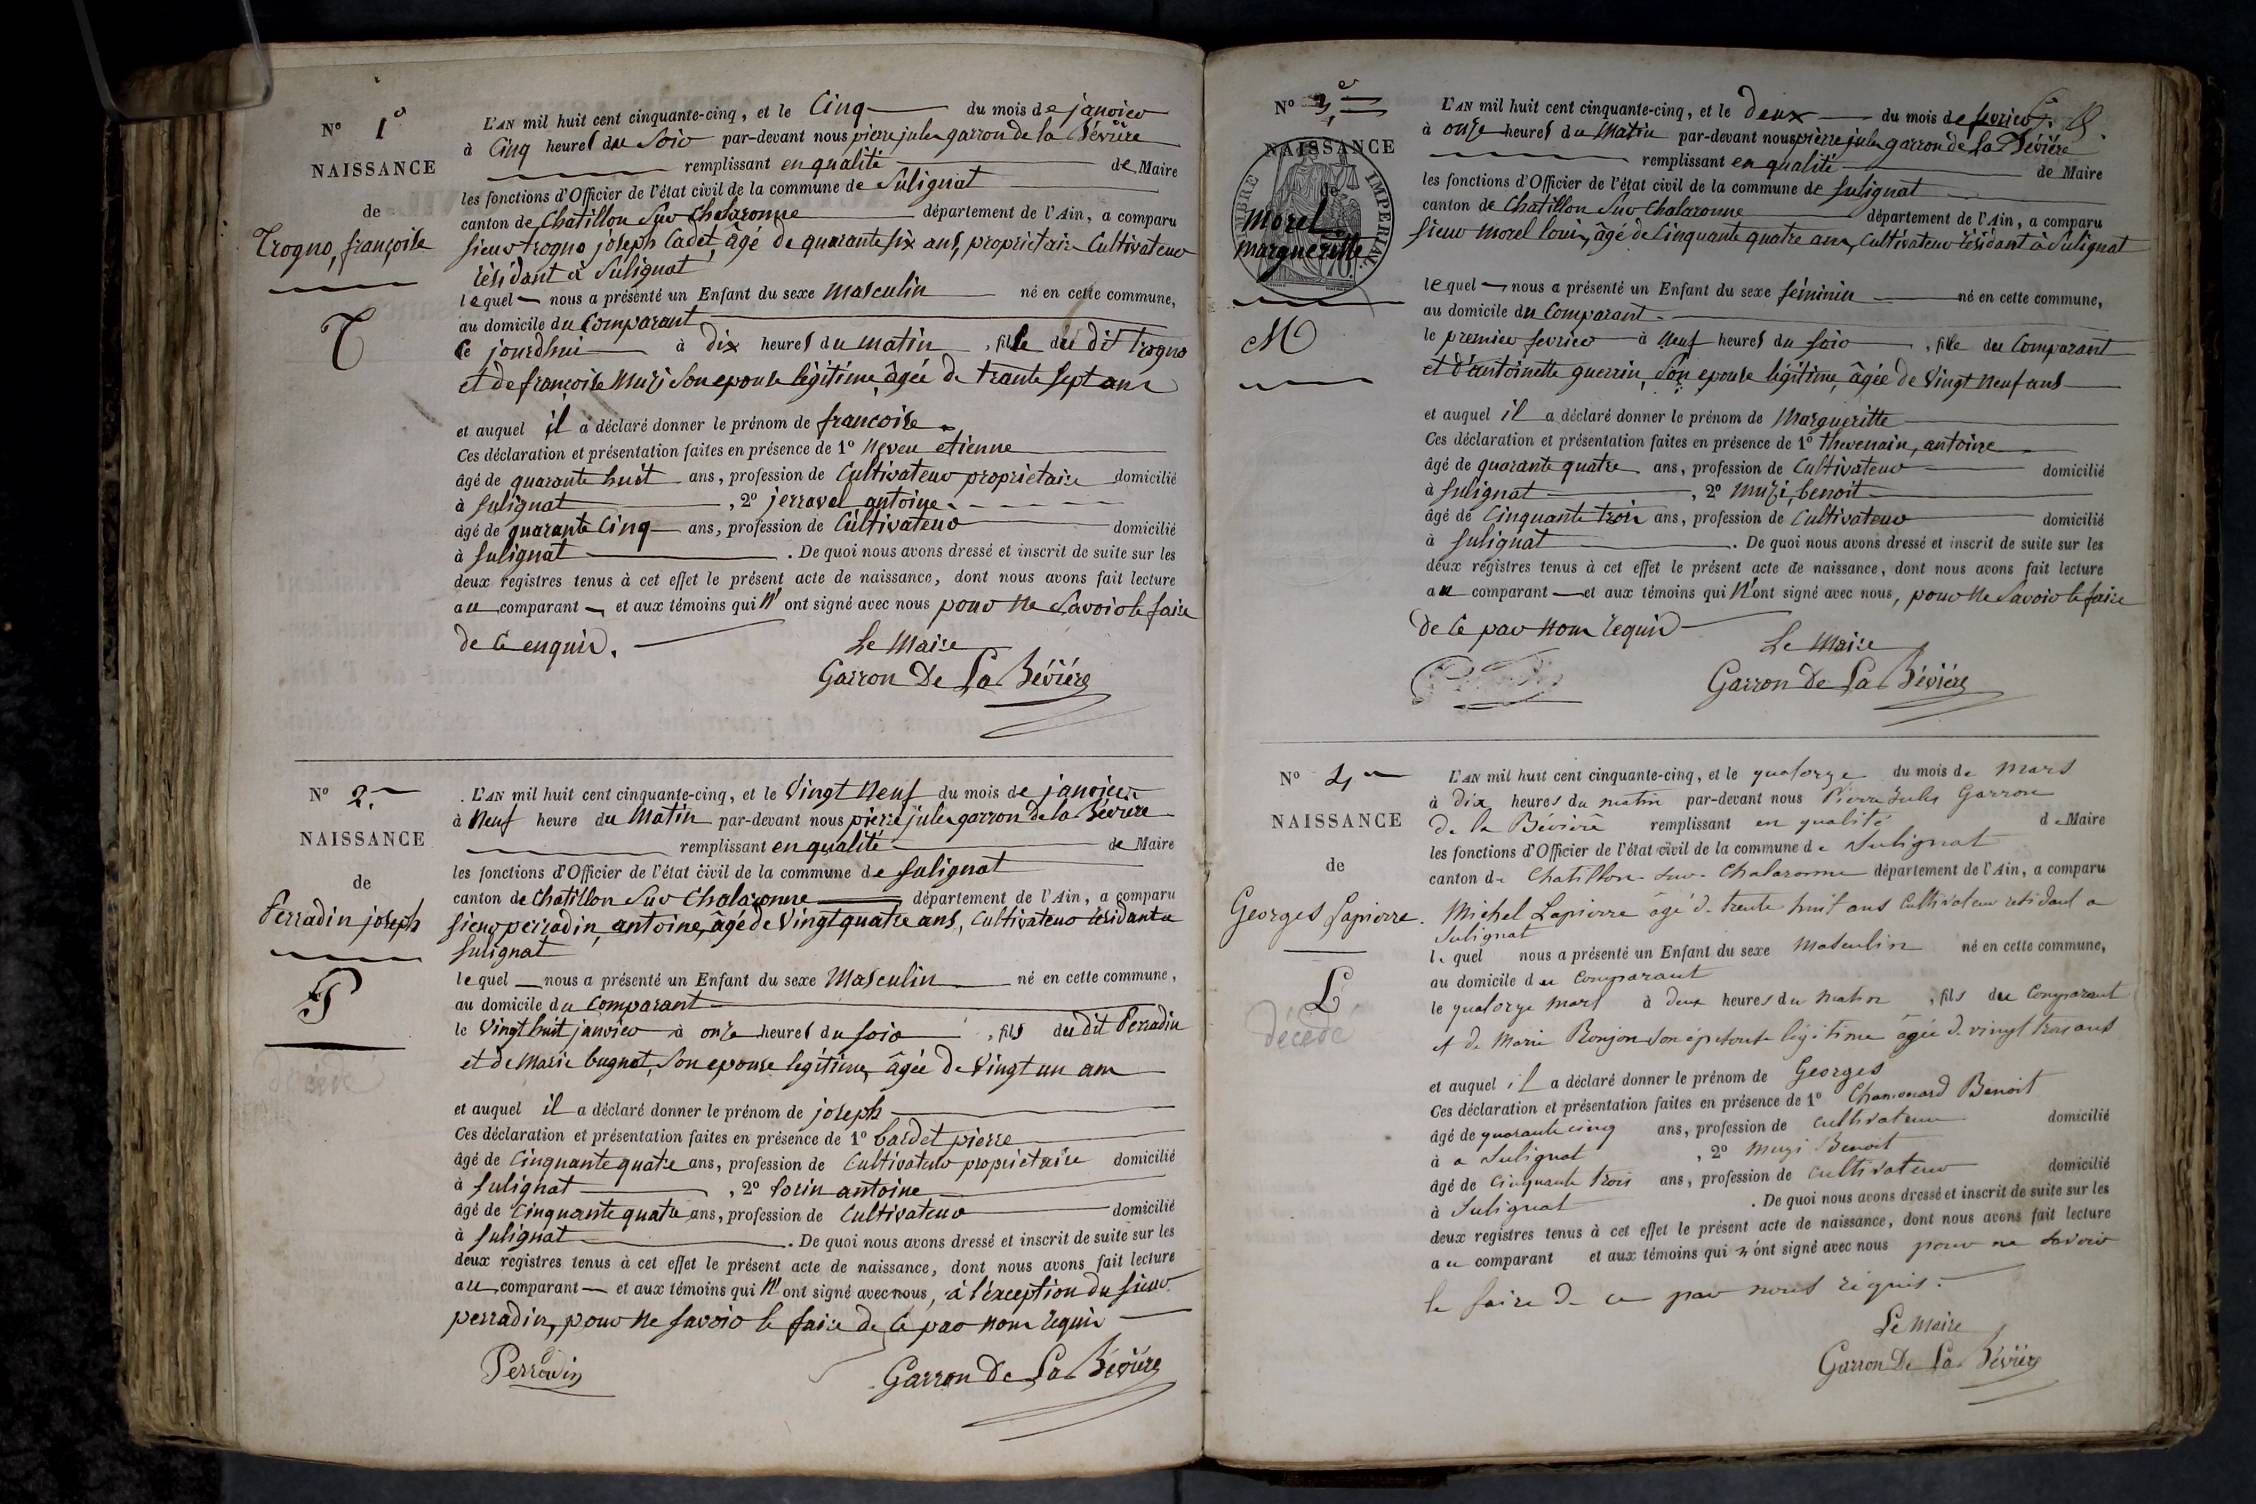 N° 1er
NAISSANCE
de
Trogno, françoise
T
L'AN mil huit cent cinquante-cinq, et le Cinq du mois de janvier
à Cinq heures du Soir par-devant nous pierre jules garron de la Bévière
remplissant en qualité de Maire
les fonctions d'Officier de l'état civil de la commune de Sulignat
canton de Chatillon Sur Chalaronne département de l'Ain, a comparu
sieur trogno joseph Cadet, âgé de quarante six ans, proprietaire Cultivateur
résidant à Sulignat
lequel nous a présenté un Enfant du sexe Masculin né en cette commune,
au domicile du Comparant
Ce jourdhui à dix heures du matin, fille du dit trogno
et de françoise Muzi Son epouse légitime, âgée de trante Sept ans
et auquel il a déclaré donner le prénom de françoise
Ces déclaration et présentation faites en présence de 1° Neveu etienne
âgé de quarante huit ans, profession de Cultivateur proprietaire domicilié
à Sulignat, 2° jerravel antoine
âgé de quarante Cinq ans, profession de Cultivateur domicilié
à Sulignat. De quoi nous avons dressé et inscrit de suite sur les
deux registres tenus à cet effet le présent acte de naissance, dont nous avons fait lecture
au comparant et aux témoins qui n'ont signé avec nous pour ne Savoir le faire
de ce enquis.
Le Maire
Garron De La Bévière
N° 2.
NAISSANCE
de
Perradin joseph
P
L'AN mil huit cent cinquante-cinq, et le Vingt Neuf du mois de janvier
à Neuf heure du Matin par-devant nous pierre jules garron de la Bévière
remplissant en qualité de Maire
les fonctions d'Officier de l'état civil de la commune de Sulignat
canton de Chatillon Sur Chalaronne département de l'Ain, a comparu
sieur perradin, antoine, âgé de Vingt quatre ans, Cultivateur résidant a
Sulignat
lequel nous a présenté un Enfant du sexe Masculin né en cette commune,
au domicile du Comparant
le Vingt huit janvier à onze heures du soir, fils du dit Perradin
et de Marie bugnot, Son epouse légitime, âgée de Vingt un ans
et auquel il a déclaré donner le prénom de joseph
Ces déclaration et présentation faites en présence de 1° bardet pierre
âgé de Cinquante quatre ans, profession de Cultivateur proprietaire domicilié
à Sulignat, 2° Sorin antoine
âgé de Cinquante quatre ans, profession de Cultivateur domicilié
à Sulignat. De quoi nous avons dressé et inscrit de suite sur les
deux registres tenus à cet effet le présent acte de naissance, dont nous avons fait lecture
au comparant et aux témoins qui n'ont signé avec nous, à l'éxception du sieur
perradin, pour ne savoir le faire de ce par nous requis
Perradin
Garron De La Bévière
N° 3
NAISSANCE
de
TIMBRE IMPÉRIAL
Morel
Margueritte
M
L'AN mil huit cent cinquante-cinq, et le deux du mois de fevrier
à onze heures du Matin par-devant nous pierre jules garron de la Bévière
remplissant en qualité de Maire
les fonctions d'Officier de l'état civil de la commune de Sulignat
canton de Chatillon Sur Chalaronne département de l'Ain, a comparu
sieur Morel louis, âgé de Cinquante quatre ans, Cultivateur résidant à Sulignat
lequel nous a présenté un Enfant du sexe féminin né en cette commune,
au domicile du Comparant.
le premier fevrier à Neuf heures du soir, fille du Comparant
et d'antoinette guerrin, Son epouse légitime, âgée de Vingt Neuf ans
et auquel il a déclaré donner le prénom de Margueritte
Ces déclaration et présentation faites en présence de 1° thevenain, antoine
âgé de quarante quatre ans, profession de Cultivateur domicilié
à Sulignat, 2° Muzi, benoit
âgé de Cinquante trois ans, profession de Cultivateur domicilié
à Sulignat. De quoi nous avons dressé et inscrit de suite sur les
deux registres tenus à cet effet le présent acte de naissance, dont nous avons fait lecture
au comparant et aux témoins qui n'ont signé avec nous, pour ne Savoir le faire
de ce par nous requis
Le Maire
Garron De La Bévière
N° 4
NAISSANCE
de
Georges Lapierre.
L
décédé
L'AN mil huit cent cinquante-cinq, et le quatorze du mois de Mars
à dix heures du matin par-devant nous Pierre Jules Garron
de la Bévière remplissant en qualité de Maire
les fonctions d'Officier de l'état civil de la commune de Sulignat
canton de Chatillon-sur-Chalaronne département de l'Ain, a comparu
Michel Lapierre âgé de trente huit ans Cultivateur résidant a
Sulignat
lequel nous a présenté un Enfant du sexe Masculin né en cette commune,
au domicile du Comparant
le quatorze Mars à deux heures du matin, fils du Comparant
et de Marie Ronjon son épouse légitime âgée de vingt trois ans
et auquel il a déclaré donner le prénom de Georges
Ces déclaration et présentation faites en présence de 1° Chamonard Benoit
âgé de quarante cinq ans, profession de cultivateur domicilié
à a Sulignat, 2° Muzi Benoit
âgé de Cinquante trois ans, profession de Cultivateur domicilié
à Sulignat. De quoi nous avons dressé et inscrit de suite sur les
deux registres tenus à cet effet le présent acte de naissance, dont nous avons fait lecture
au comparant et aux témoins qui n'ont signé avec nous pour ne savoir
le faire de ce par nous requis.
Le Maire
Garron De La Bévière